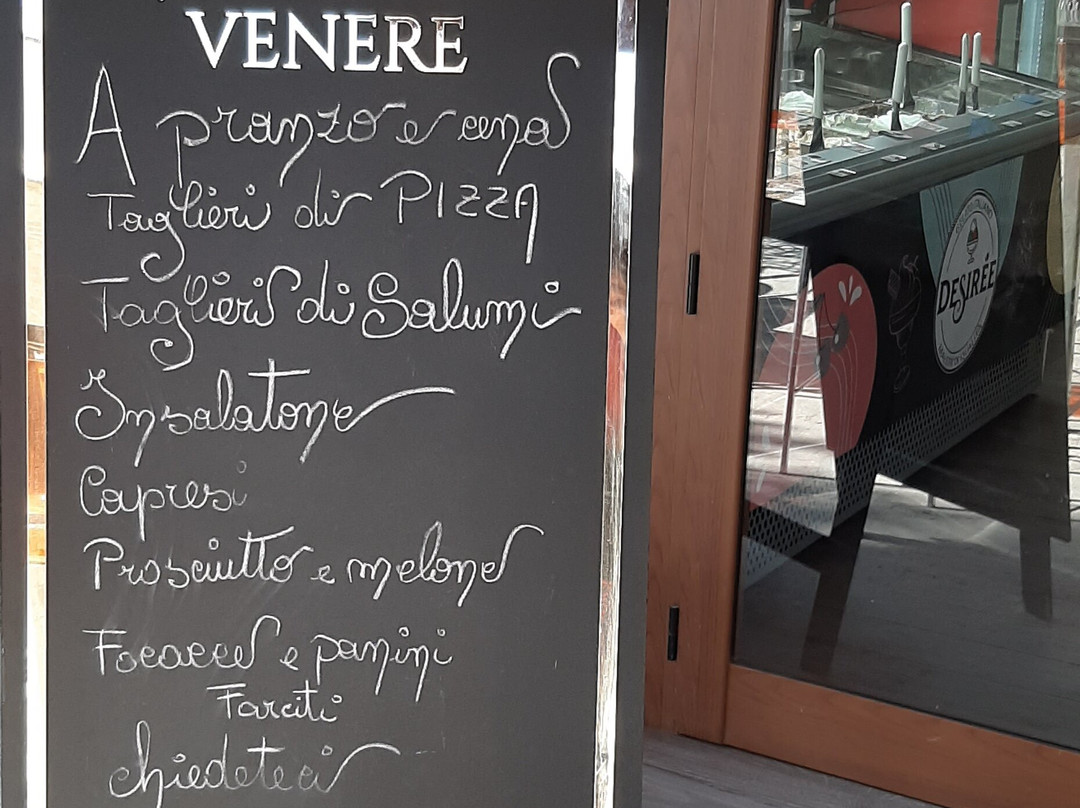 VENERE
A pranzo e cena
Taglieri di PIZZA
Taglieri di Salumi
Insalatone
Capresi
Prosciutto e melone
Focacce e panini
Farciti
chiedeteci
DESIRÉE